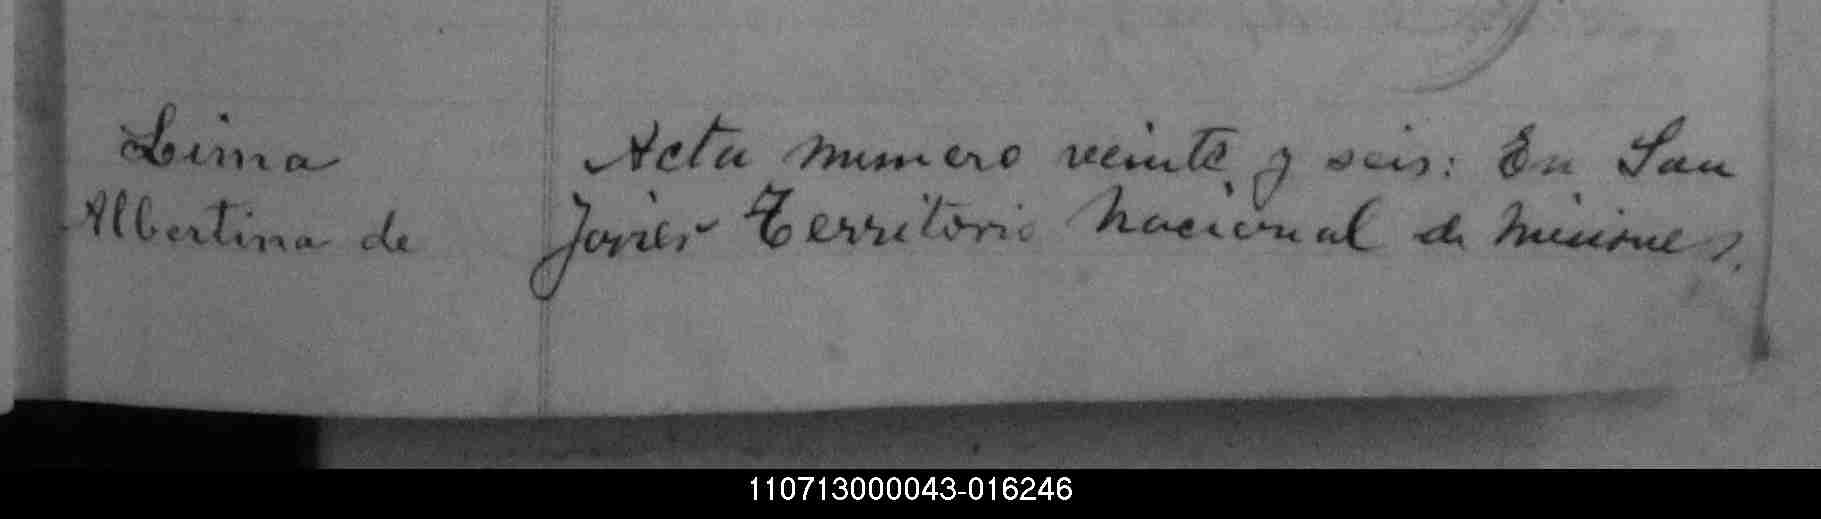 Lima
Albertina de
Acta numero veinte y seis: En San
Javier Territorio Nacional de Misiones,
110713000043-016246